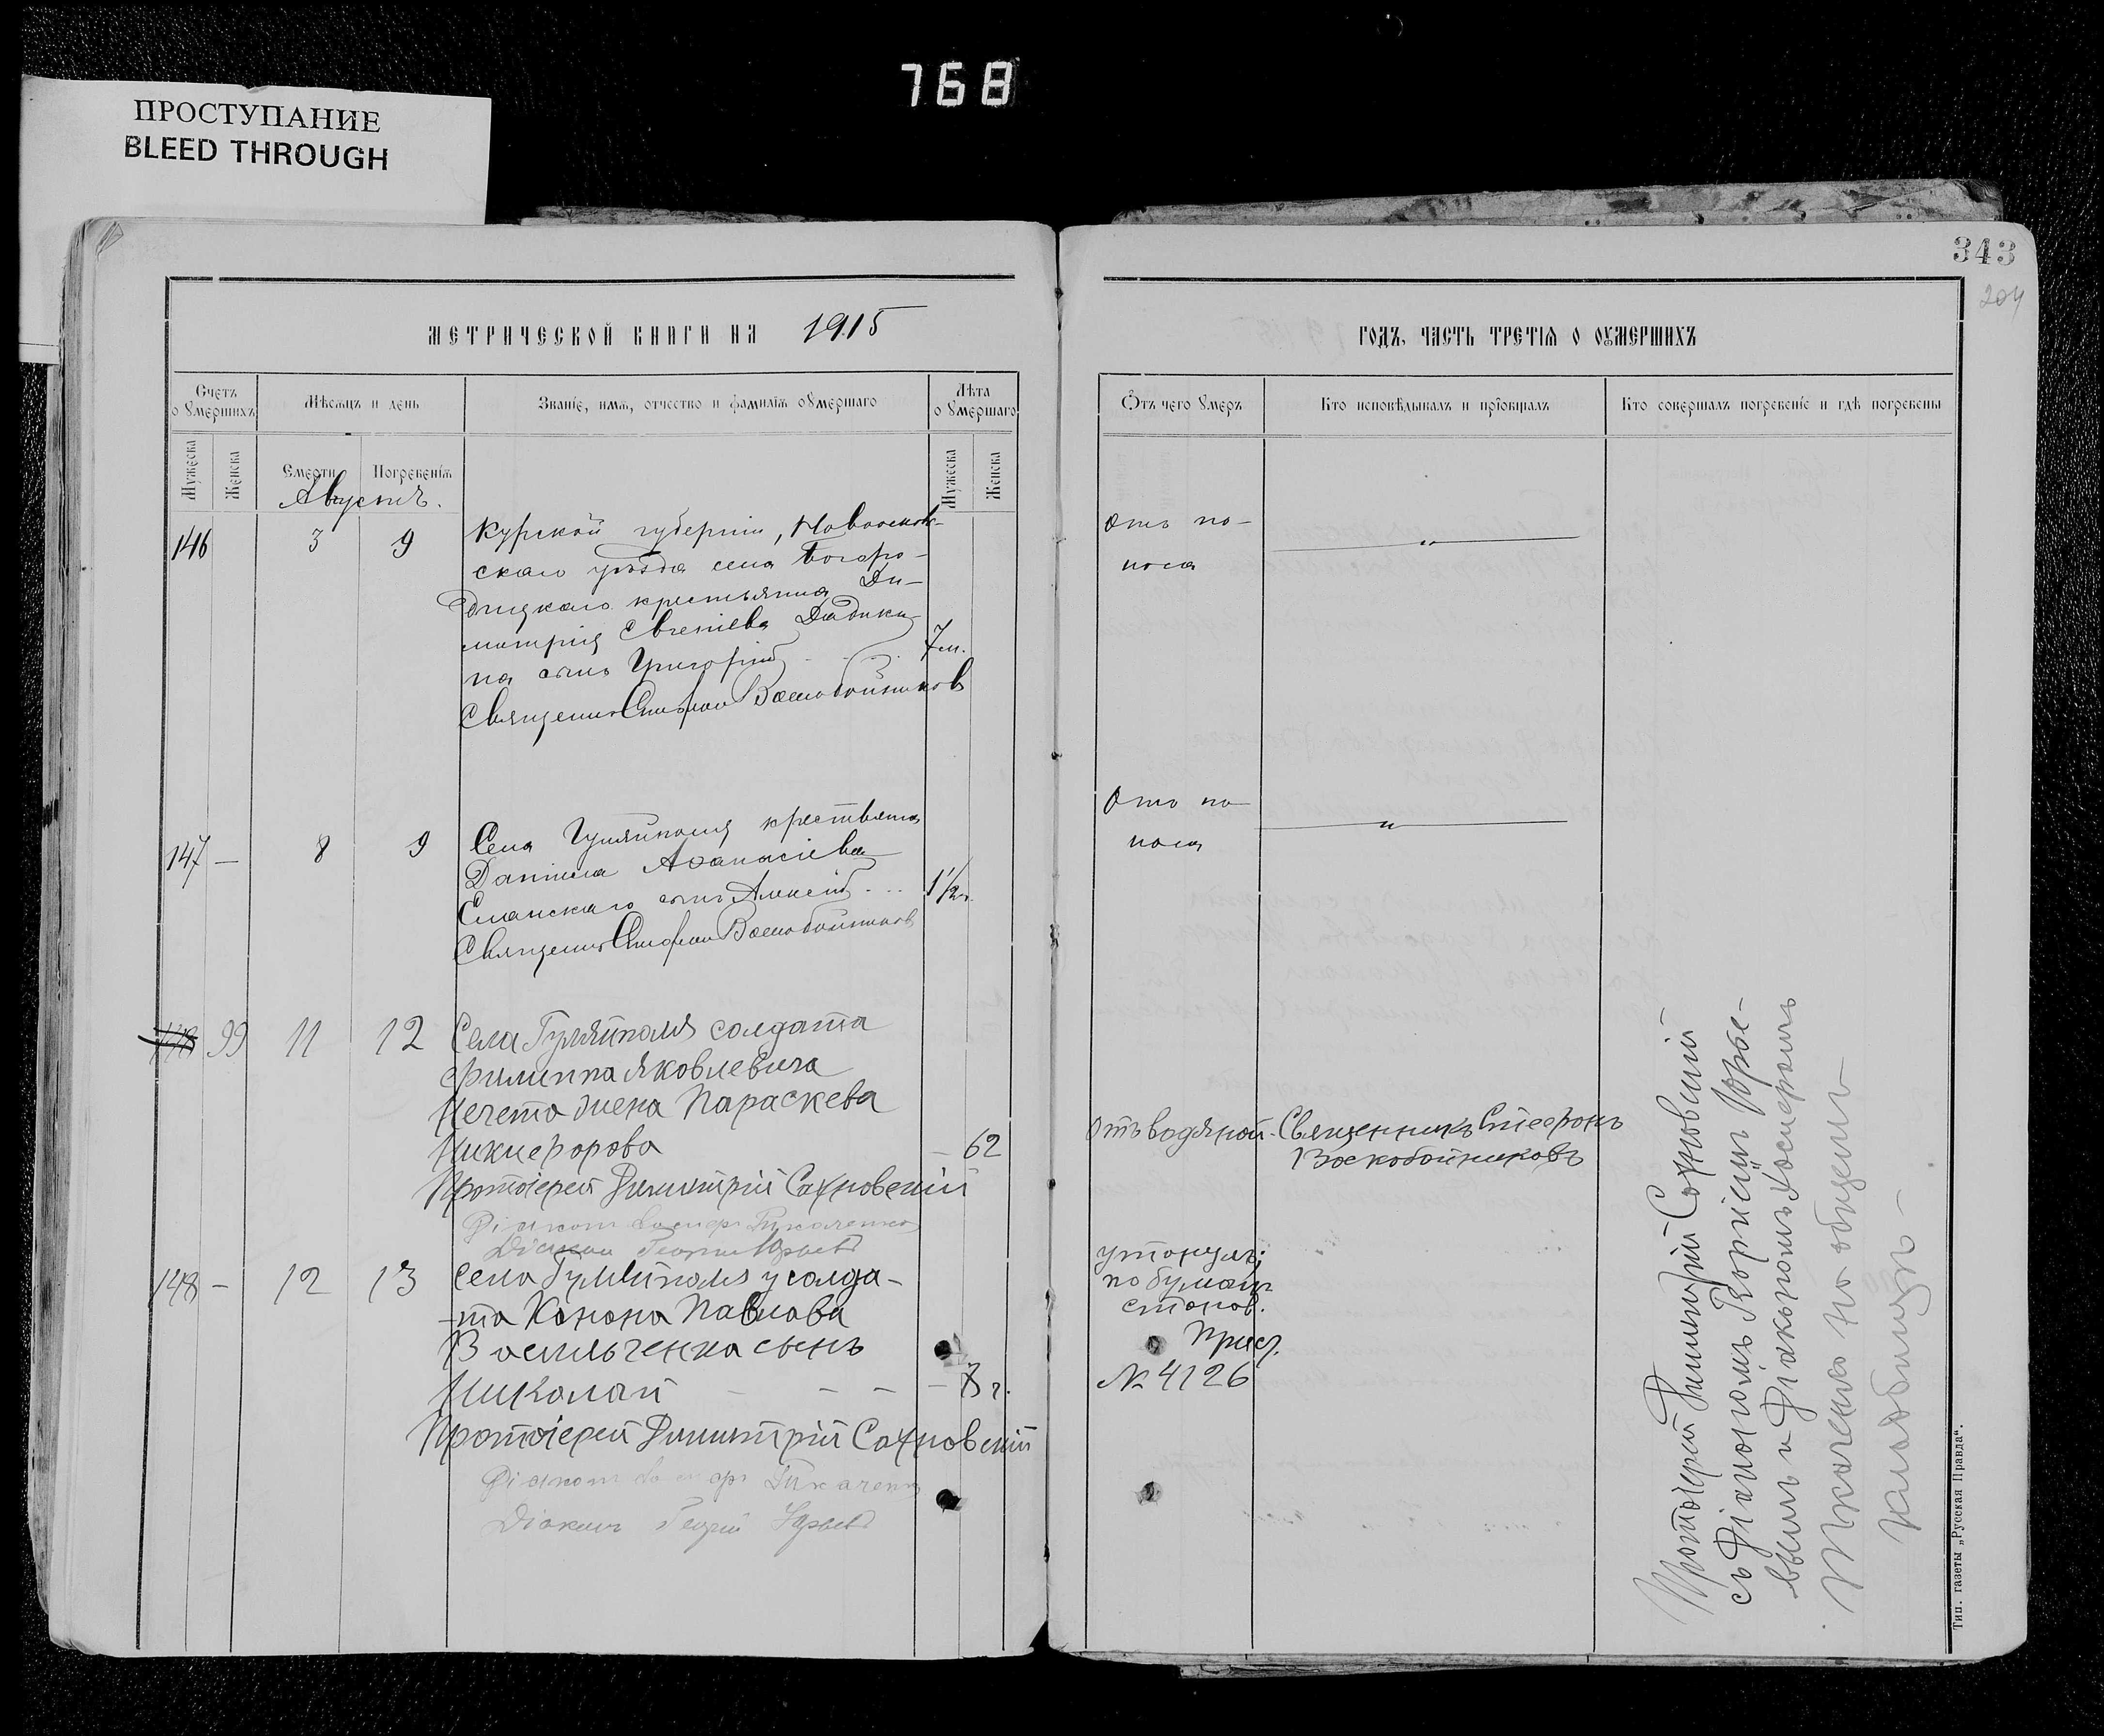 768
ПРОСТУПАНИЕ
BLEED THROUGH
343
204
МЕТРИЧЕСКОЙ КНИГИ НА 1915
Счетъ оумершихъ
Мѣсяцъ и день
Званіе, имя, отчество и фамилія оумершаго
Лѣта оумершаго
Мужеска
Женска
Смерти
Погребенія
Мужеска
Женска
Августъ.
146 3 9 Курской губерніи, Новооскол-
скаго уѣзда села Богоро-
дицкаго крестьянина Ди-
митрія Евгеніева Дадыки-
на сынъ Григорій 7 м.
Священникъ Стефанъ Воскобойниковъ
147 — 8 9 Села Гуляйполя крестьянина
Даніила Аѳанасіева
сынъ Алексій 1 1/2 г.
Священникъ Стефанъ Воскобойниковъ
148 99 11 12 Села Гуляйполя солдата
Филиппа Яковлевича
Нечета жена Параскева
Никифорова — 62
Протоіерей Димитрій Сахновскій
Діаконъ Ткаченко
Діаконъ Георгій Юрьевъ
148 — 12 13 Села Гуляйполя у солда-
та Конона Павлова
Васильченка сынъ
Николай — — — — 8 г.
Протоіерей Димитрій Сахновскій
Діаконъ Ткаченко
Діаконъ Георгій Юрьевъ
ГОДЪ, ЧАСТЬ ТРЕТІЯ О ОУМЕРШИХЪ
Отъ чего умеръ
Кто исповѣдывалъ и пріобщалъ
Кто совершалъ погребеніе и гдѣ погребены
Отъ по-
носа
Отъ по-
носа
Отъ водяной. Священникъ Стефанъ
Воскобойниковъ
утонулъ;
по бумагѣ
станов.
Прист.
№ 4126
Протоіерей Димитрій Сахновскій
съ Діакономъ Георгіемъ Юрье-
вымъ и Діакономъ
Ткаченко на общемъ
кладбищѣ —
Тип. газеты „Русская Правда“.